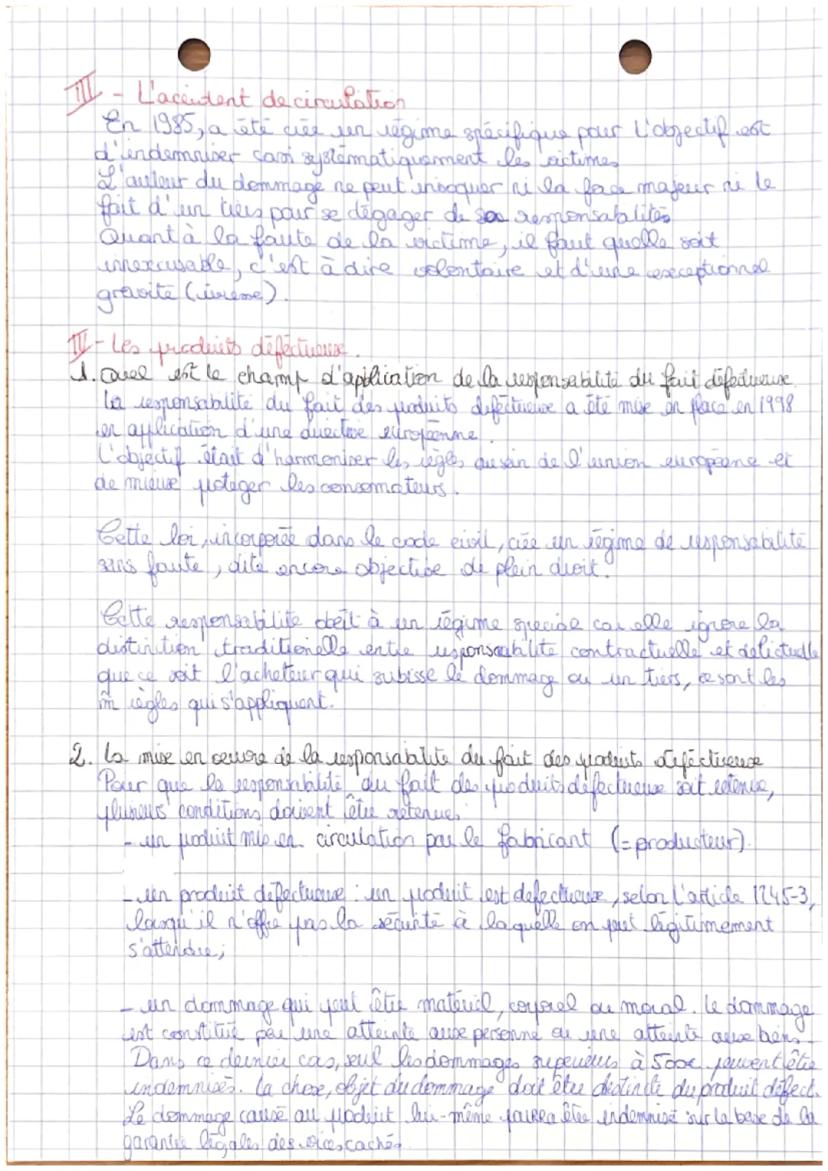 III - L'accident de circulation
En 1985, a été créé un régime spécifique pour l'objectif est
d'indemniser casi systématiquement les victimes
L'auteur du dommage ne peut invoquer ni la force majeur ni le
fait d'un tiers pour se dégager de sa responsabilités
Quant à la faute de la victime, il faut quelle soit
innexcusable, c'est à dire volontaire et d'une exceptionnel
gravité
III - Les produits défectueux.
1. Quel est le champ d'application de la responsabilité du fait défectueux
La responsabilité du fait des produits défectueux a été mise en place en 1998
en application d'une directive européenne.
L'objectif était d'harmoniser les règles au sein de l'union européene et
de mieux protéger les consomateurs.
Cette loi, incorporée dans le code civil, crée un régime de responsabilité
sans faute, dite encore objective de plein droit.
Cette responsabilité obéit à un régime spécial car elle ignore la
distinction traditionelle entre responsabilité contractuelle et délictuelle
que ce soit l'acheteur qui subisse le dommage ou un tiers, ce sont les
m̂ règles qui s'appliquent.
2. La mise en oeuvre de la responsabilité du fait des produits défectueux
Pour que la responsabilité du fait des produits défectueux soit retenue,
plusieurs conditions doivent être retenues
- un produit mis en circulation par le fabricant (= producteur).
- un produit défectueux : un produit est défectueux, selon l'article 1245-3,
lorsqu'il n'offre pas la sécurité à laquelle on peut légitimement
s'attendre;
- un dommage qui peut être matériel, corporel ou moral. Le dommage
est constitué par une atteinte aux personne ou une atteinte aux biens.
Dans ce dernier cas, seul les dommages supérieurs à 500€ peuvent être
indemnisés. La chose, objet du dommage doit être distincte du produit défect.
Le dommage causé au produit lui-même pourra être indemnisé sur la base de la
garantie légales des vices cachés.